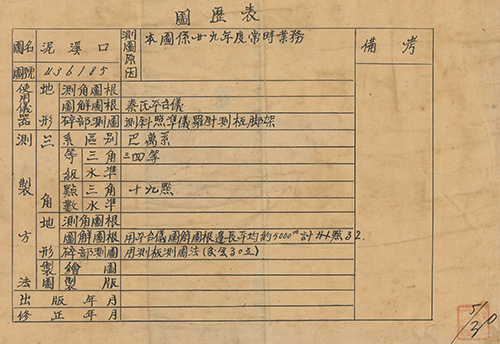 圖歷表
圖名 泥溪口 測圖原因 本圖係廿九年度常時業務 備考
圖號 U36185
使用儀器 地形 測角圖根
圖解圖根 秦氏平台儀
碎部測圖 測斜照準儀羅尉測板脚架
測製方法 三角 系區別 巴萬系
等級 三角 三四等
水準
點數 三角 十九點
水準
地形 測角圖根
圖解圖根 用平台儀圖解圖根邊長平均約5000m計
碎部測圖 用測板測圖法
製圖 繪圖
製版
出版年月
修正年月
5/30